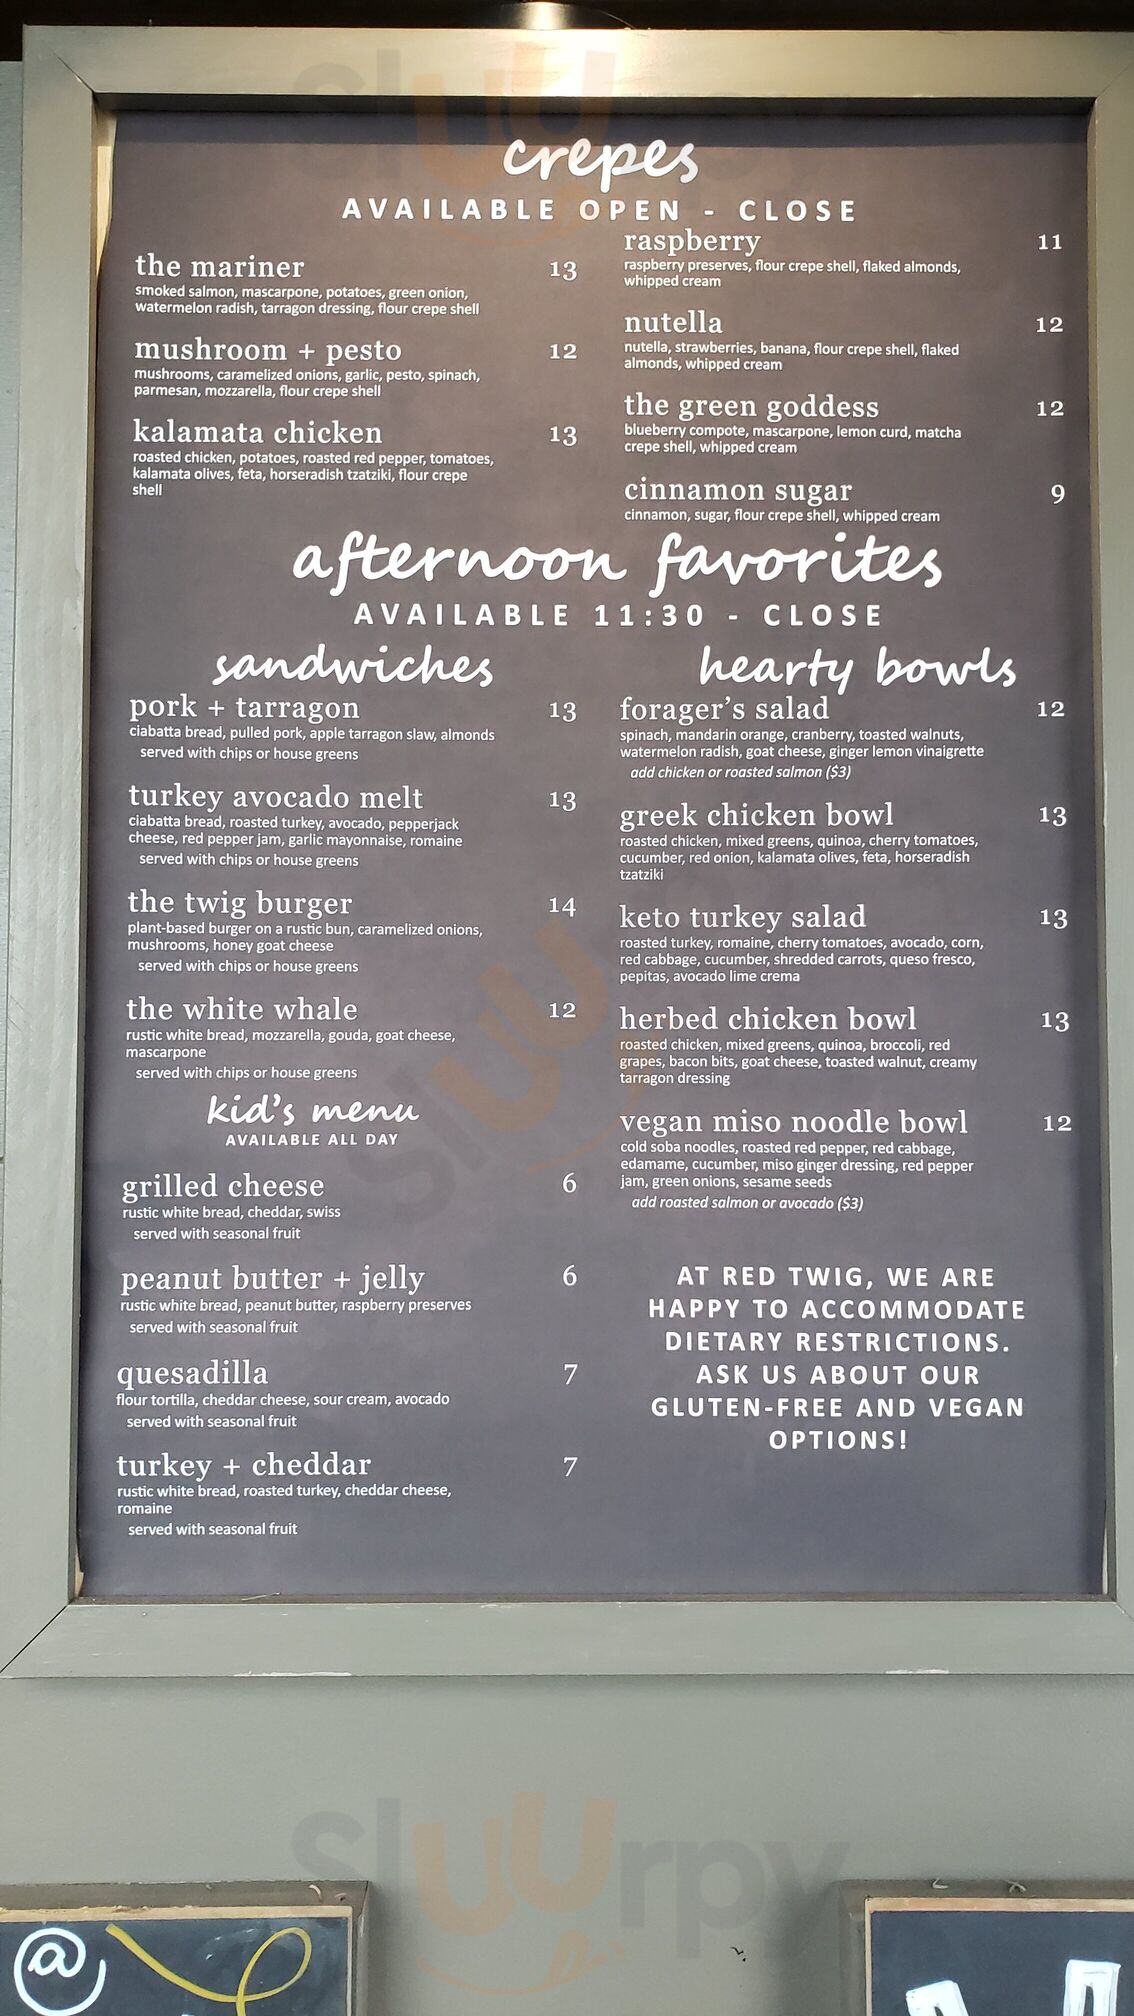 crepes
AVAILABLE OPEN - CLOSE
the mariner 13
smoked salmon, mascarpone, potatoes, green onion,
watermelon radish, tarragon dressing, flour crepe shell
mushroom + pesto 12
mushrooms, caramelized onions, garlic, pesto, spinach,
parmesan, mozzarella, flour crepe shell
kalamata chicken 13
roasted chicken, potatoes, roasted red pepper, tomatoes,
kalamata olives, feta, horseradish tzatziki, flour crepe
shell
raspberry 11
raspberry preserves, flour crepe shell, flaked almonds,
whipped cream
nutella 12
nutella, strawberries, banana, flour crepe shell, flaked
almonds, whipped cream
the green goddess 12
blueberry compote, mascarpone, lemon curd, matcha
crepe shell, whipped cream
cinnamon sugar 9
cinnamon, sugar, flour crepe shell, whipped cream
afternoon favorites
AVAILABLE 11:30 - CLOSE
sandwiches
pork + tarragon 13
ciabatta bread, pulled pork, apple tarragon slaw, almonds
served with chips or house greens
turkey avocado melt 13
ciabatta bread, roasted turkey, avocado, pepperjack
cheese, red pepper jam, garlic mayonnaise, romaine
served with chips or house greens
the twig burger 14
plant-based burger on a rustic bun, caramelized onions,
mushrooms, honey goat cheese
served with chips or house greens
the white whale 12
rustic white bread, mozzarella, gouda, goat cheese,
mascarpone
served with chips or house greens
kid's menu
AVAILABLE ALL DAY
grilled cheese 6
rustic white bread, cheddar, swiss
served with seasonal fruit
peanut butter + jelly 6
rustic white bread, peanut butter, raspberry preserves
served with seasonal fruit
quesadilla 7
flour tortilla, cheddar cheese, sour cream, avocado
served with seasonal fruit
turkey + cheddar 7
rustic white bread, roasted turkey, cheddar cheese,
romaine
served with seasonal fruit
hearty bowls
forager's salad 12
spinach, mandarin orange, cranberry, toasted walnuts,
watermelon radish, goat cheese, ginger lemon vinaigrette
add chicken or roasted salmon ($3)
greek chicken bowl 13
roasted chicken, mixed greens, quinoa, cherry tomatoes,
cucumber, red onion, kalamata olives, feta, horseradish
tzatziki
keto turkey salad 13
roasted turkey, romaine, cherry tomatoes, avocado, corn,
red cabbage, cucumber, shredded carrots, queso fresco,
pepitas, avocado lime crema
herbed chicken bowl 13
roasted chicken, mixed greens, quinoa, broccoli, red
grapes, bacon bits, goat cheese, toasted walnut, creamy
tarragon dressing
vegan miso noodle bowl 12
cold soba noodles, roasted red pepper, red cabbage,
edamame, cucumber, miso ginger dressing, red pepper
jam, green onions, sesame seeds
add roasted salmon or avocado ($3)
AT RED TWIG, WE ARE
HAPPY TO ACCOMMODATE
DIETARY RESTRICTIONS.
ASK US ABOUT OUR
GLUTEN-FREE AND VEGAN
OPTIONS!
Sluurpy
Sluurpy
Sluurpy
@